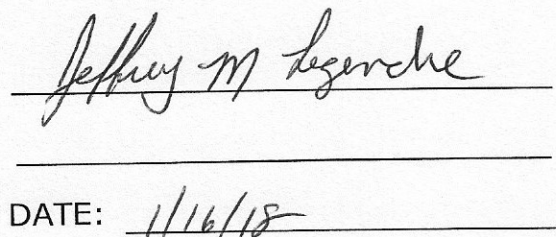 Jeffrey M Legendre
DATE: 1/16/18